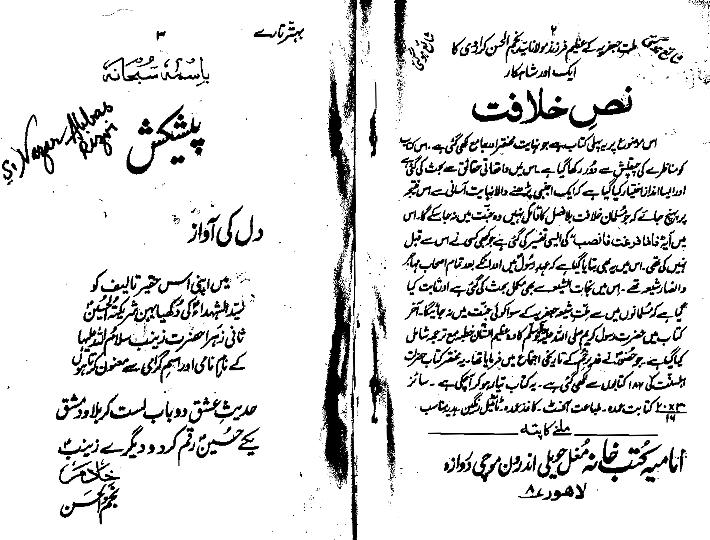 ۲
شائع ہو گئی
ملت جعفریہ کے عظیم فرزند مولانا سید نجم الحسن کراروی کا
شائع ہو گئی
ایک اور شاہکار
نصِ خلافت
اس موضوع پر یہ پہلی کتاب ہے جو نہایت مختصر اور جامع لکھی گئی ہے۔ اس کتاب
کو مناظرے کی چپقلش سے دور رکھا گیا ہے۔ اس میں واقعاتی حقائق سے بحث کی گئی ہے
اور ایسا انداز اختیار کیا گیا ہے کہ ایک اجنبی پڑھنے والا نہایت آسانی سے اس نتیجہ
پر پہنچ جائے کہ جو مسلمان خلافت بلا فصل کا قائل نہیں وہ جنت میں نہ جا سکے گا۔ اس
میں آیۂ فاذا فرغت فانصب کی ایسی تفسیر کی گئی ہے جو کبھی کسی نے اس سے قبل
نہیں کی تھی۔ اس میں یہ بھی بتایا گیا ہے کہ عہد رسولؐ میں اور انکے بعد تمام اصحاب مہاجر
وانصار شیعہ تھے۔ اس میں نجات الشیعہ سے بھی مکمل بحث کی گئی ہے اور ثابت کیا
گیا ہے کہ مسلمانوں میں سے فرقہ شیعہ جعفریہ کے سوا کوئی جنت میں نہ جائیگا۔ آخر
کتاب میں حضرت رسول کریم صلی اللہ علیہ وآلہ وسلم کا وہ عظیم الشان خطبہ مع ترجمہ شامل
کیا گیا ہے۔ جو حضورؐ نے غدیر خم کے تاریخی اجتماع میں فرمایا تھا۔ یہ مختصر کتاب حضرات
اہلسنت کی ۱۸۷ کتابوں سے لکھی گئی ہے۔ یہ کتاب تیار ہو کر آچکی ہے۔ سائز
۲۰×۳۰/۱۶ کتابت عمدہ۔ طباعت آفسٹ۔ کاغذ عمدہ۔ ٹائٹیل رنگین۔ ہدیہ مناسب
ملنے کا پتہ
امامیہ کتب خانہ مغل حویلی اندرون موچی دروازہ
لاہور ۸
بہتر تارے
۳
باسمہ سبحانہ
پیشکش
Nazar Abbas
Rizvi
دل کی آواز
میں اپنی اس حقیر تالیف کو
سید الشہداء کی دکھیا بہن شریکۃ الحسینؑ
ثانی زہرا حضرت زینب سلام اللہ علیہا
کے نام نامی اور اسم گرامی سے معنون کرتا ہوں
حدیث عشق دو باب است کربلا و دمشق
یکے حسینؑ رقم کرد و دیگرے زینبؑ
خادم
نجم الحسن